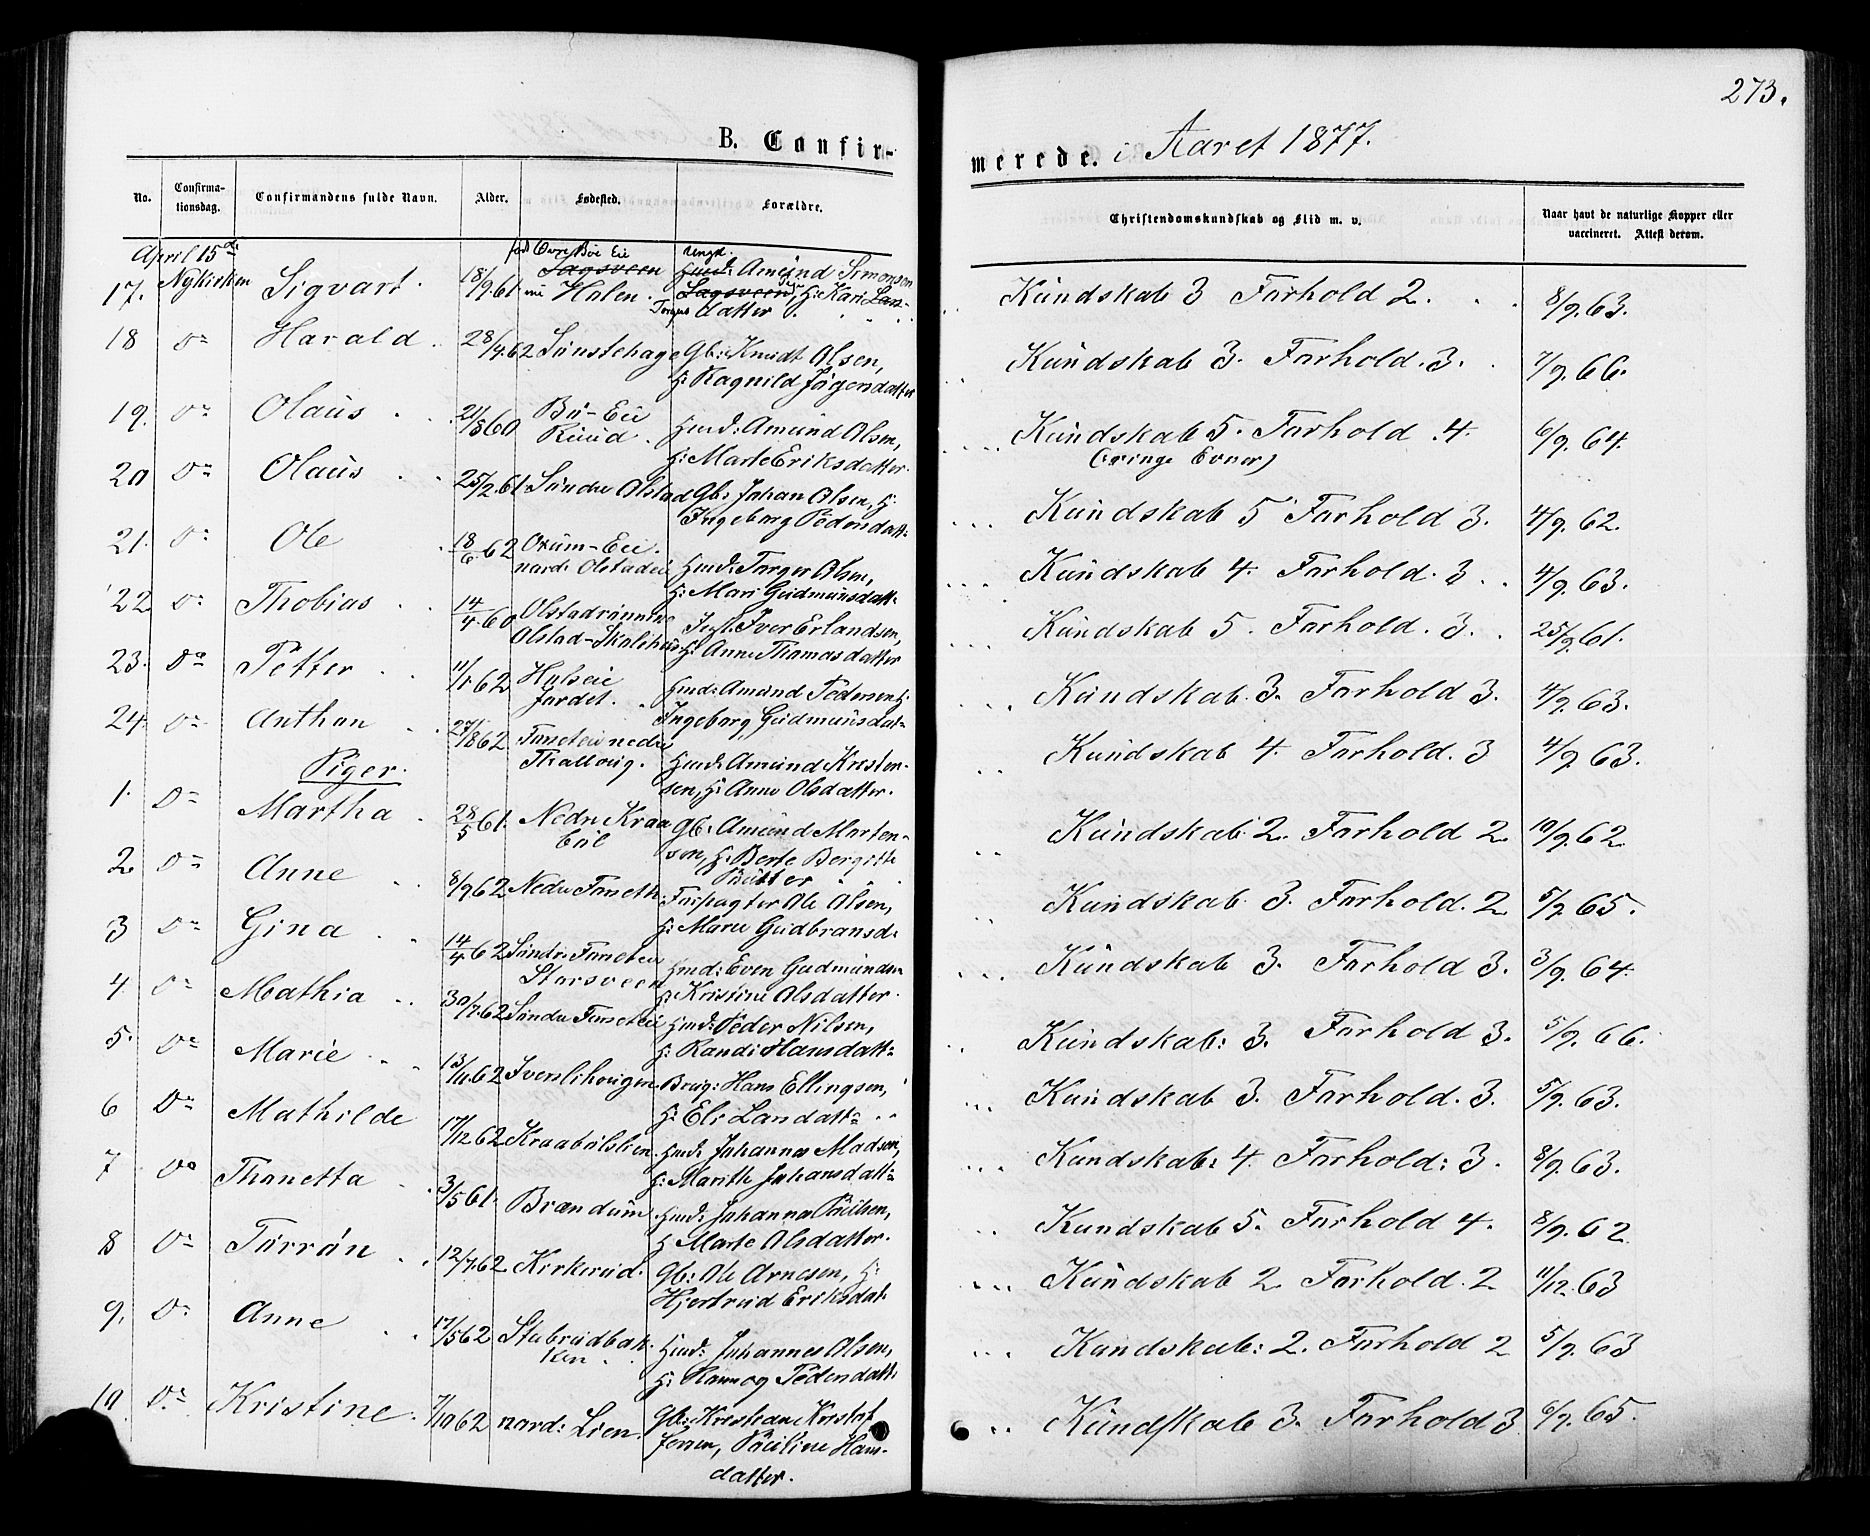 273.
B. Confir-
merede. i Aaret 1877.
No.
Confirma-
tionsdag.
Confirmandens fulde Navn.
Alder.
Fødested.
Forældre.
Christendomskundskab og Flid m. v.
Naar havt de naturlige Kopper eller
vaccineret. Attest derom.
April 15de
17. Nykirken Sigvart 18/9.61 Øvre Böe Eie Hølen. Amund Simonsen Kari datter Kündskab 3 Forhold 2. 8/9.63.
18 Do Harald 28/4.62 Sönstehage Gb: Knudt Olsen,
H: Ragnild Jögensdatter Kündskab 3. Forhold. 3. 7/9.66.
19. Do Olaüs 21/8 60 Bö-Eie
Rüüd. Hmd: Amünd Olsen,
H: Marte Eriksdatter. Kündskab 5. Forhold 4.
(ringe Evner) 6/9.64.
20 Do Olaüs 25/2.61. Söndre Olstad Gb: Johan Olsen, H:
Ingeborg Pedersdatt: Kündskab 5 Forhold 3. 4/9.62.
21. Do Ole 18/6 62 Oxüm-Eie.
nord: Olstadeie Hmd: Torger Olsen,
H: Mari Gudmunsdatt: Kündskab 4. Forhold. 3. 4/9.63.
22 Do Thobias 14/4.60 Olstadrönning
Olstad-Skalehus Inst. Iver Erlandsen,
H: Anne Thomasdatter Kündskab 5. Forhold. 3. 25/9.61.
23. Do Petter 11/1.62 Hulseie
Jordet. Hmd: Amünd Pedersen H:
Ingeborg Gudmünsdat- Kündskab. 3. Forhold 3. 4/9.63.
24. Do Anthon 27/8 62 Fonsteie nedre
Thallovig. Hmd: Amund Kresten-
sen, H: Anne Olsdatter. Kündskab 4. Forhold. 3 4/9.63.
Piger.
1. Do Martha 28/5 61. Nedre Kraa
böl Gb: Amünd Morten-
sen, H: Berte Bergitte Kündskab 2. Forhold 2. 10/9.62.
2. Do Anne 8/9 62 Nedre Fonseth Forpagter Ole Olsen,
H: Marie Gudbransd. Kündskab. 3. Forhold. 2. 5/9.65.
3 Do Gina 14/4 62 Söndr: Fonsteie
Storsveen Hmd: Even Gudmünds-
H: Kristine Olsdatter. Kündskab 3. Forhold 3. 3/9.64.
4. Do Mathia 30/7.62 Söndre Fonsteie Hmd: Peder Nilsen,
H: Randi Hansdatt: Kündskab: 3. Forhold 3. 5/9.66.
5. Do Marie 13/11.62 Iverslihougen Brug: Hans Ellingsen,
H: Eli Larsdatt: Kündskab 3. Forhold. 3. 5/9.63.
6 Do Mathilde 17/12 62 Kraabölslien Hmd: Johannes Madsen,
H: Marithe Johansdatt: Kündskab: 4. Forhold: 3. 8/9.63.
7 Do Thonetta 3/5 61. Brændum Hmd: Johannes Pöülsen,
H: Marte Olsdatter. Kündskab 5. Forhold 4. 8/9.62
8 Do Torrön 12/7.62 Kirkerüd. Gb: Ole Arnesen, H:
Hjertrud Eriksdat. Kündskab 2 Forhold. 2 11/12.63
9. Do Anne 17/5 62 Stubrudbak
ken Hmd: Johannes Olsen,
H: Rönnog Pedersdatt: Kündskab: 2. Forhold 2 5/9.63
10 Do Kristine. 7/10 62 nord: Lien. Gb: Kristian Kristof
fersen, Pöüline Hans-
datter. Kündskab 3. Forhold 3 6/9.65.